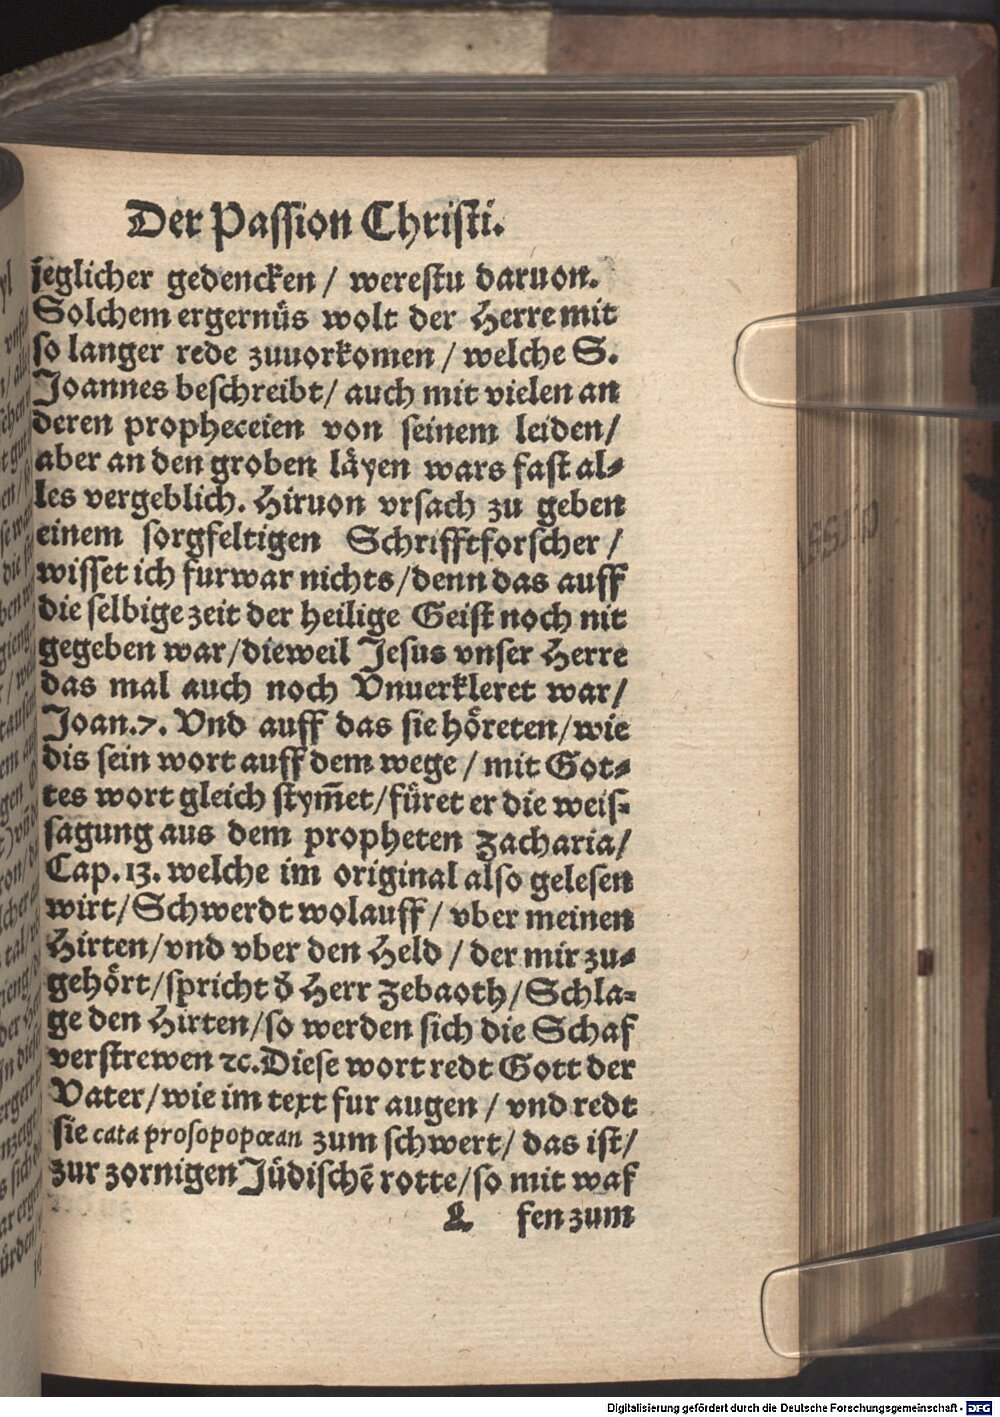 Der Passion Christi.
jeglicher gedencken / werestu daruon.
Solchem ergernüs wolt der Herre mit
so langer rede zuuorkomen / welche S.
Joannes beschreibt / auch mit vielen an
deren propheceien von seinem leiden /
aber an den groben läyen wars fast al⸗
les vergeblich. Hiruon vrsach zu geben
einem sorgfeltigen Schrifftforscher /
wisset ich furwar nichts / denn das auff
die selbige zeit der heilige Geist noch nit
gegeben war / dieweil Jesus vnser Herre
das mal auch noch Vnuerkleret war /
Joan.7. Vnd auff das sie höreten / wie
dis sein wort auff dem wege / mit Got⸗
tes wort gleich stym̃et / füret er die weis⸗
sagung aus dem propheten Zacharia /
Cap. 13. welche im original also gelesen
wirt / Schwerdt wolauff / vber meinen
Hirten / vnd vber den Held / der mir zu⸗
gehört / spricht d̕ Herr Zebaoth / Schla⸗
ge den Hirten / so werden sich die Schaf
verstrewen ꝛc. Diese wort redt Gott der
Vater / wie im text fur augen / vnd redt
sie cata prosopopœan zum schwert / das ist /
zur zornigen Jüdischē rotte / so mit waf
L fen zum
Digitalisierung gefördert durch die Deutsche Forschungsgemeinschaft - DFG